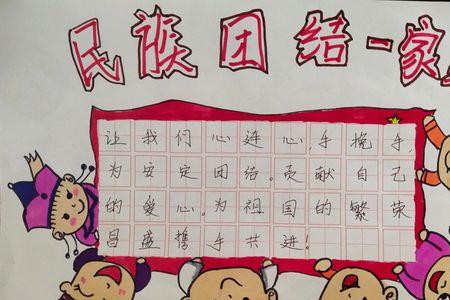 民族团结一家
让我们心连心手挽手,
为安定团结。贡献自己
的爱心。为祖国的繁荣
昌盛携手共进!